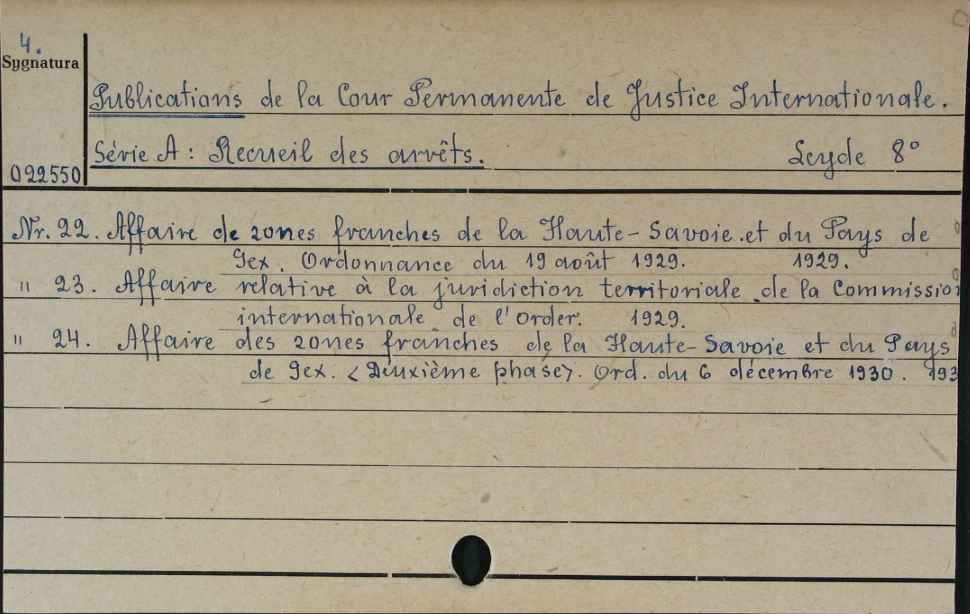 4.
Sygnatura
Publications de la Cour Permanente de Justice Internationale.
Série A : Recueil des arrêts. Leyde 8°
022550
Nr. 22. Affaire de zones franches de la Haute-Savoie et du Pays de
Gex. Ordonnance du 19 août 1929. 1929.
" 23. Affaire relative à la juridiction territoriale de la Commission
internationale de l'Order. 1929.
" 24. Affaire des zones franches de la Haute-Savoie et du Pays
de Gex. <Deuxième phase>. Ord. du 6 décembre 1930. 193